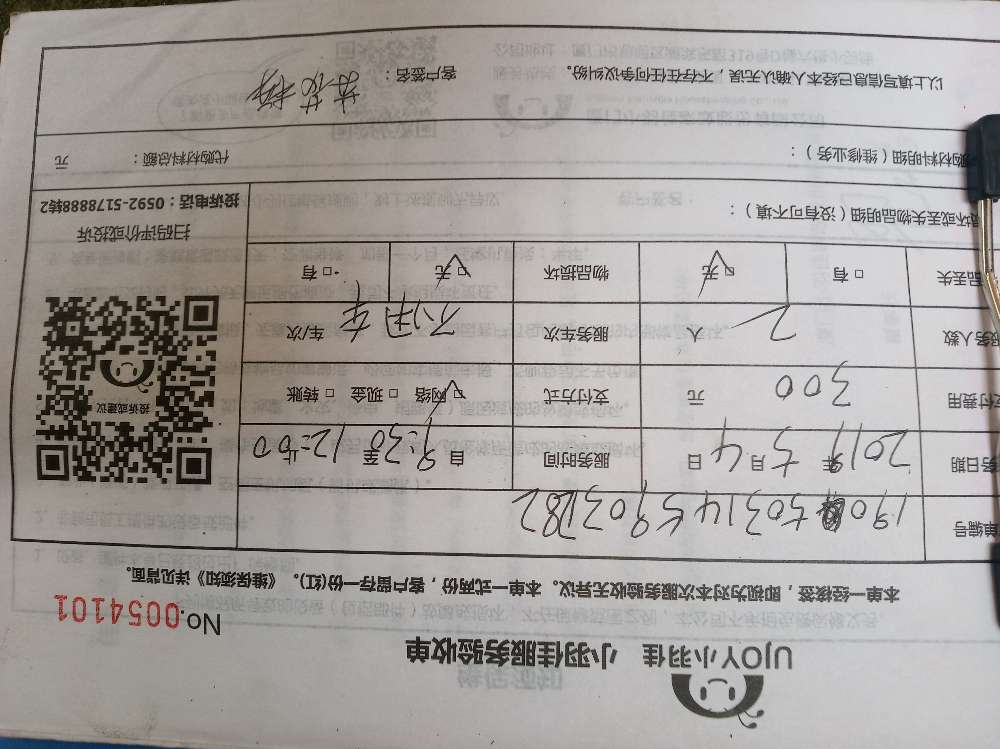 UJOY小羽佳 小羽佳服务验收单
No.0054101
本单一经接签，即视为对本次服务验收无异议。本单一式两份，客户留存一份(红)。《维保须知》详见背面。
单编号
务日期 2019年5月4日 服务时间 自9:30至12:00
付费用 300元 支付方式 网络 □现金 □转账
务人数 2人 服务车次 车/次
品丢失 □有 □无 物品损坏 □无 □有
投诉或建议
扫码评价或投诉
投诉电话：0592-5178888转2
坏或丢失物品明细（没有可不填）：
购材料明细（维修业务）： 代购材料总额： 元
以上填写信息已经本人确认无误，不存在任何争议纠纷。 客户签名：